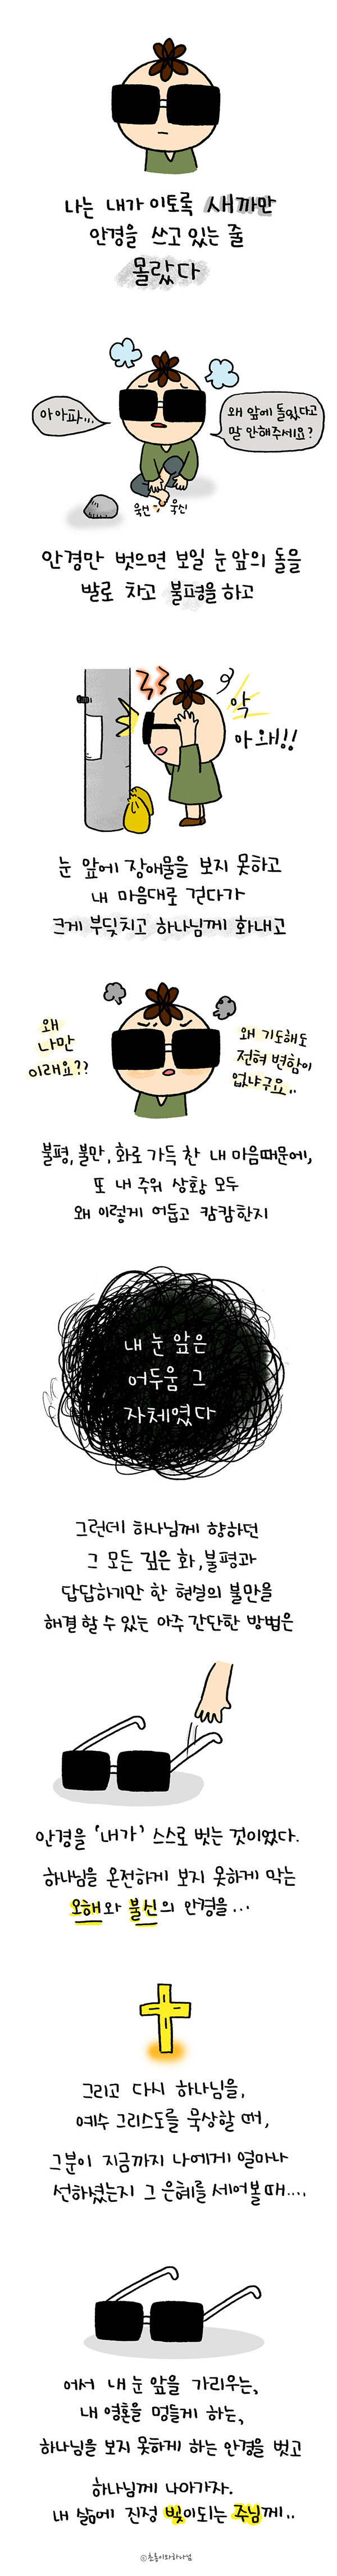 나는 내가 이토록 새까만
안경을 쓰고 있는 줄
몰랐다
아아파...
왜 앞에 돌있다고
말 안해주세요?
욱신 욱신
안경만 벗으면 보일 눈 앞의 돌을
발로 차고 불평을 하고
악
아 왜!!
눈 앞에 장애물을 보지 못하고
내 마음대로 걷다가
크게 부딪치고 하나님께 화내고
왜
나만
이래요??
왜 기도해도
전혀 변함이
없냐구요..
불평, 불만, 화로 가득 찬 내 마음때문에,
또 내 주위 상황 모두
왜 이렇게 어둡고 캄캄한지
내 눈 앞은
어두움 그
자체였다
그런데 하나님께 향하던
그 모든 깊은 화, 불평과
답답하기만 한 현실의 불만을
해결 할 수 있는 아주 간단한 방법은
안경을 '내가' 스스로 벗는 것이었다.
하나님을 온전하게 보지 못하게 막는
오해와 불신의 안경을...
그리고 다시 하나님을,
예수 그리스도를 묵상할 때,
그분이 지금까지 나에게 얼마나
선하셨는지 그 은혜를 세어볼 때....
어서 내 눈 앞을 가리우는,
내 영혼을 멍들게 하는,
하나님을 보지 못하게 하는 안경을 벗고
하나님께 나아가자.
내 삶에 진정 빛이되는 주님께..
ⓒ초롱이와하나님